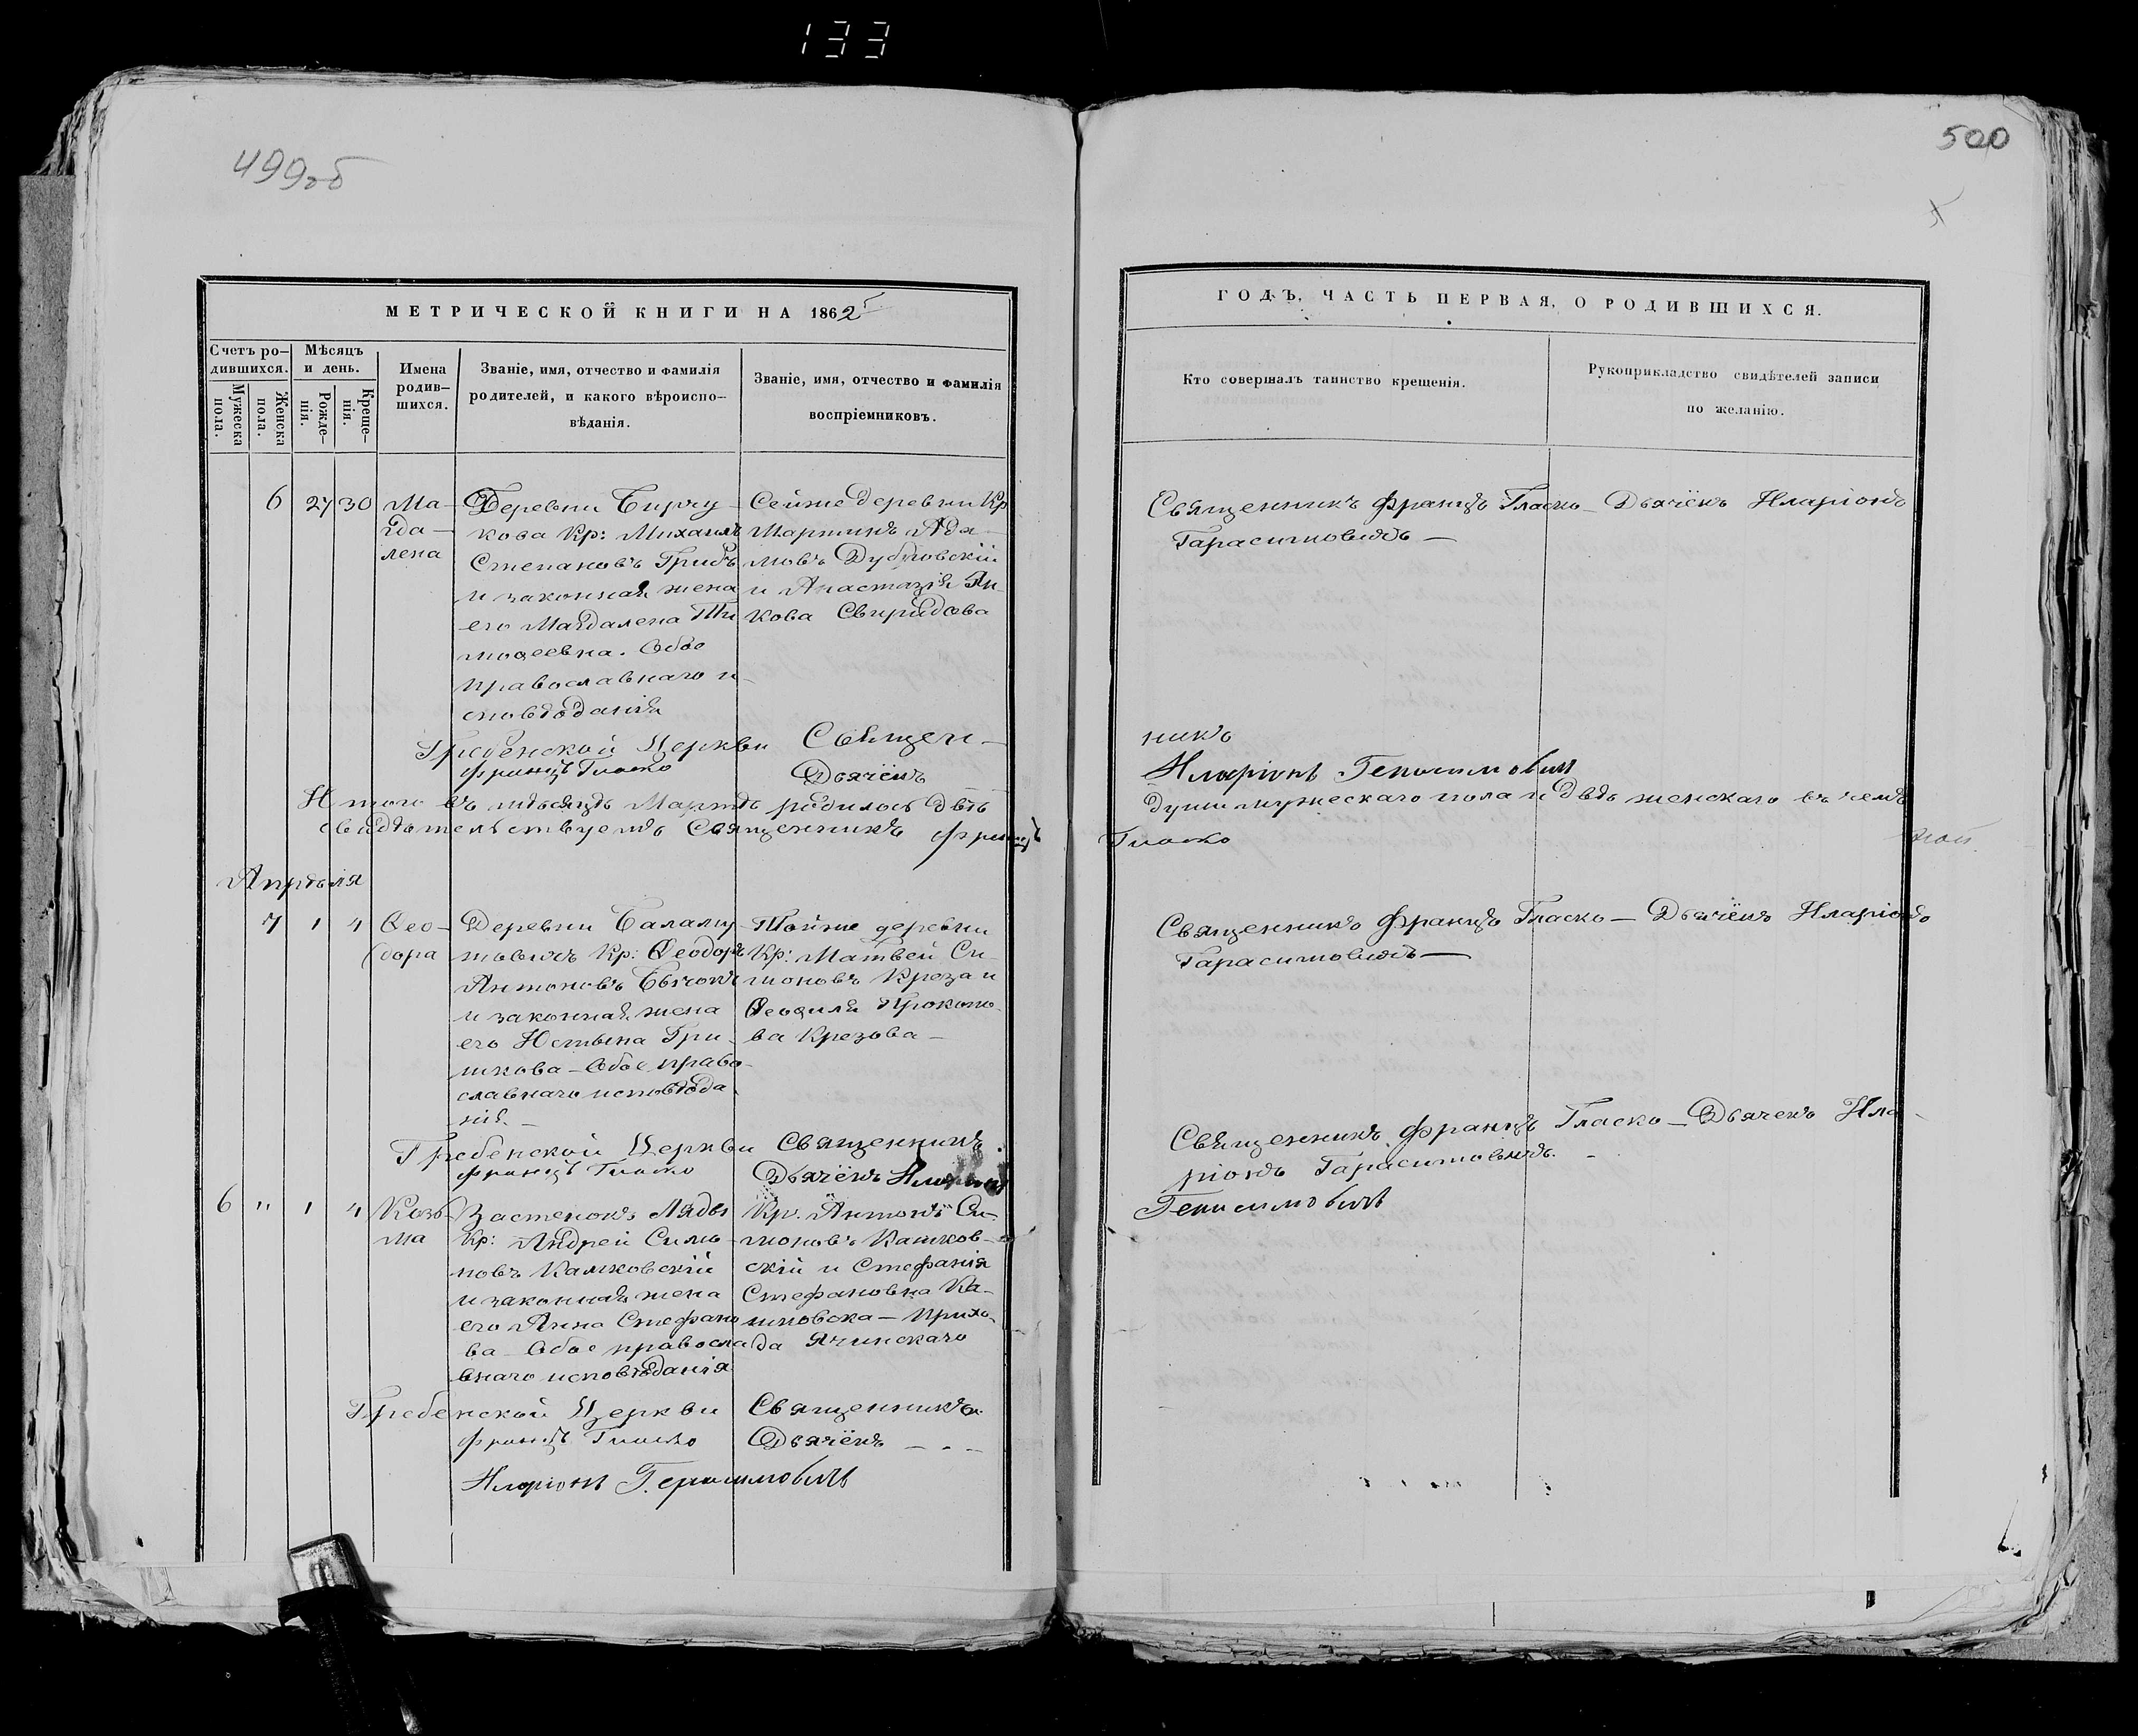 133
499об
500
МЕТРИЧЕСКОЙ КНИГИ НА 1862
Счетъ ро-
дившихся.
Мужеска
пола.
Женска
пола.
Мѣсяцъ
и день.
Рожде-
нія.
Креще-
нія.
Имена
родив-
шихся.
Званіе, имя, отчество и фамилія
родителей, и какого вѣроиспо-
вѣданія.
Званіе, имя, отчество и фамилія
воспріемниковъ.
ГОДЪ, ЧАСТЬ ПЕРВАЯ, О РОДИВШИХСЯ.
Кто совершалъ таинство крещенія.
Рукоприкладство свидѣтелей записи
по желанію.
6 27 30
Ма-
гда-
лена
Деревни
кова Кр: Михаилъ
Степановъ Грибъ
и законная жена
его Магдалена Ти
моѳеевна. Обое
православнаго и-
сповѣданія
Сейже деревни Кр
Мартинъ Ада-
мовъ
и Анастазія Ян-
кова Свиридова
Священникъ Францъ Гласко – Дьячёкъ Иларіонъ
Гарасимовичъ —
Гребенской Церкви Священ-
никъ
Францъ Гласко Дьячёкъ
Иларіонъ Герасимовичъ
Итого въ мѣсяцѣ Мартѣ родилось двѣ
души мужескаго пола и двѣ женскаго въ чемъ
свидѣтельствуемъ Священникъ Францъ
Гласко
Апрѣля
7 1 4
Ѳео-
дора
Деревни
Кр: Ѳеодоръ
Антоновъ Бычокъ
и законная жена
его Юстына Гри-
шкова – Обое право-
славнаго исповѣда
нія. —
Тойже деревни
Кр: Матвей Си-
моновъ Креза и
Ѳеофиля Прокопо
ва Крезова –
Священникъ Францъ Гласко — Дьячёкъ Иларіонъ
Гарасимовичъ —
Гребенской Церкви Священникъ
Францъ Гласко Дьячёкъ Иларіонъ
Герасимовичъ
6 " 1 4
Козь-
ма
Застенокъ Ляды
Кр: Андрей Симо-
новъ Кашковскій
и законная жена
его Анна Стефано
ва – Обое правосла
внаго исповѣданія
Кр. Антонъ Си-
моновъ Кашков-
скій и Стефанія
Стефановна Ка-
шковска – Прихо-
да Ячинскаго
Священникъ Францъ Гласко – Дьячекъ Ила-
ріонъ Гарасимовичъ. –
Гребенской Церкви Священникъ
Францъ Гласко Дьячёкъ
Иларіонъ Герасимовичъ